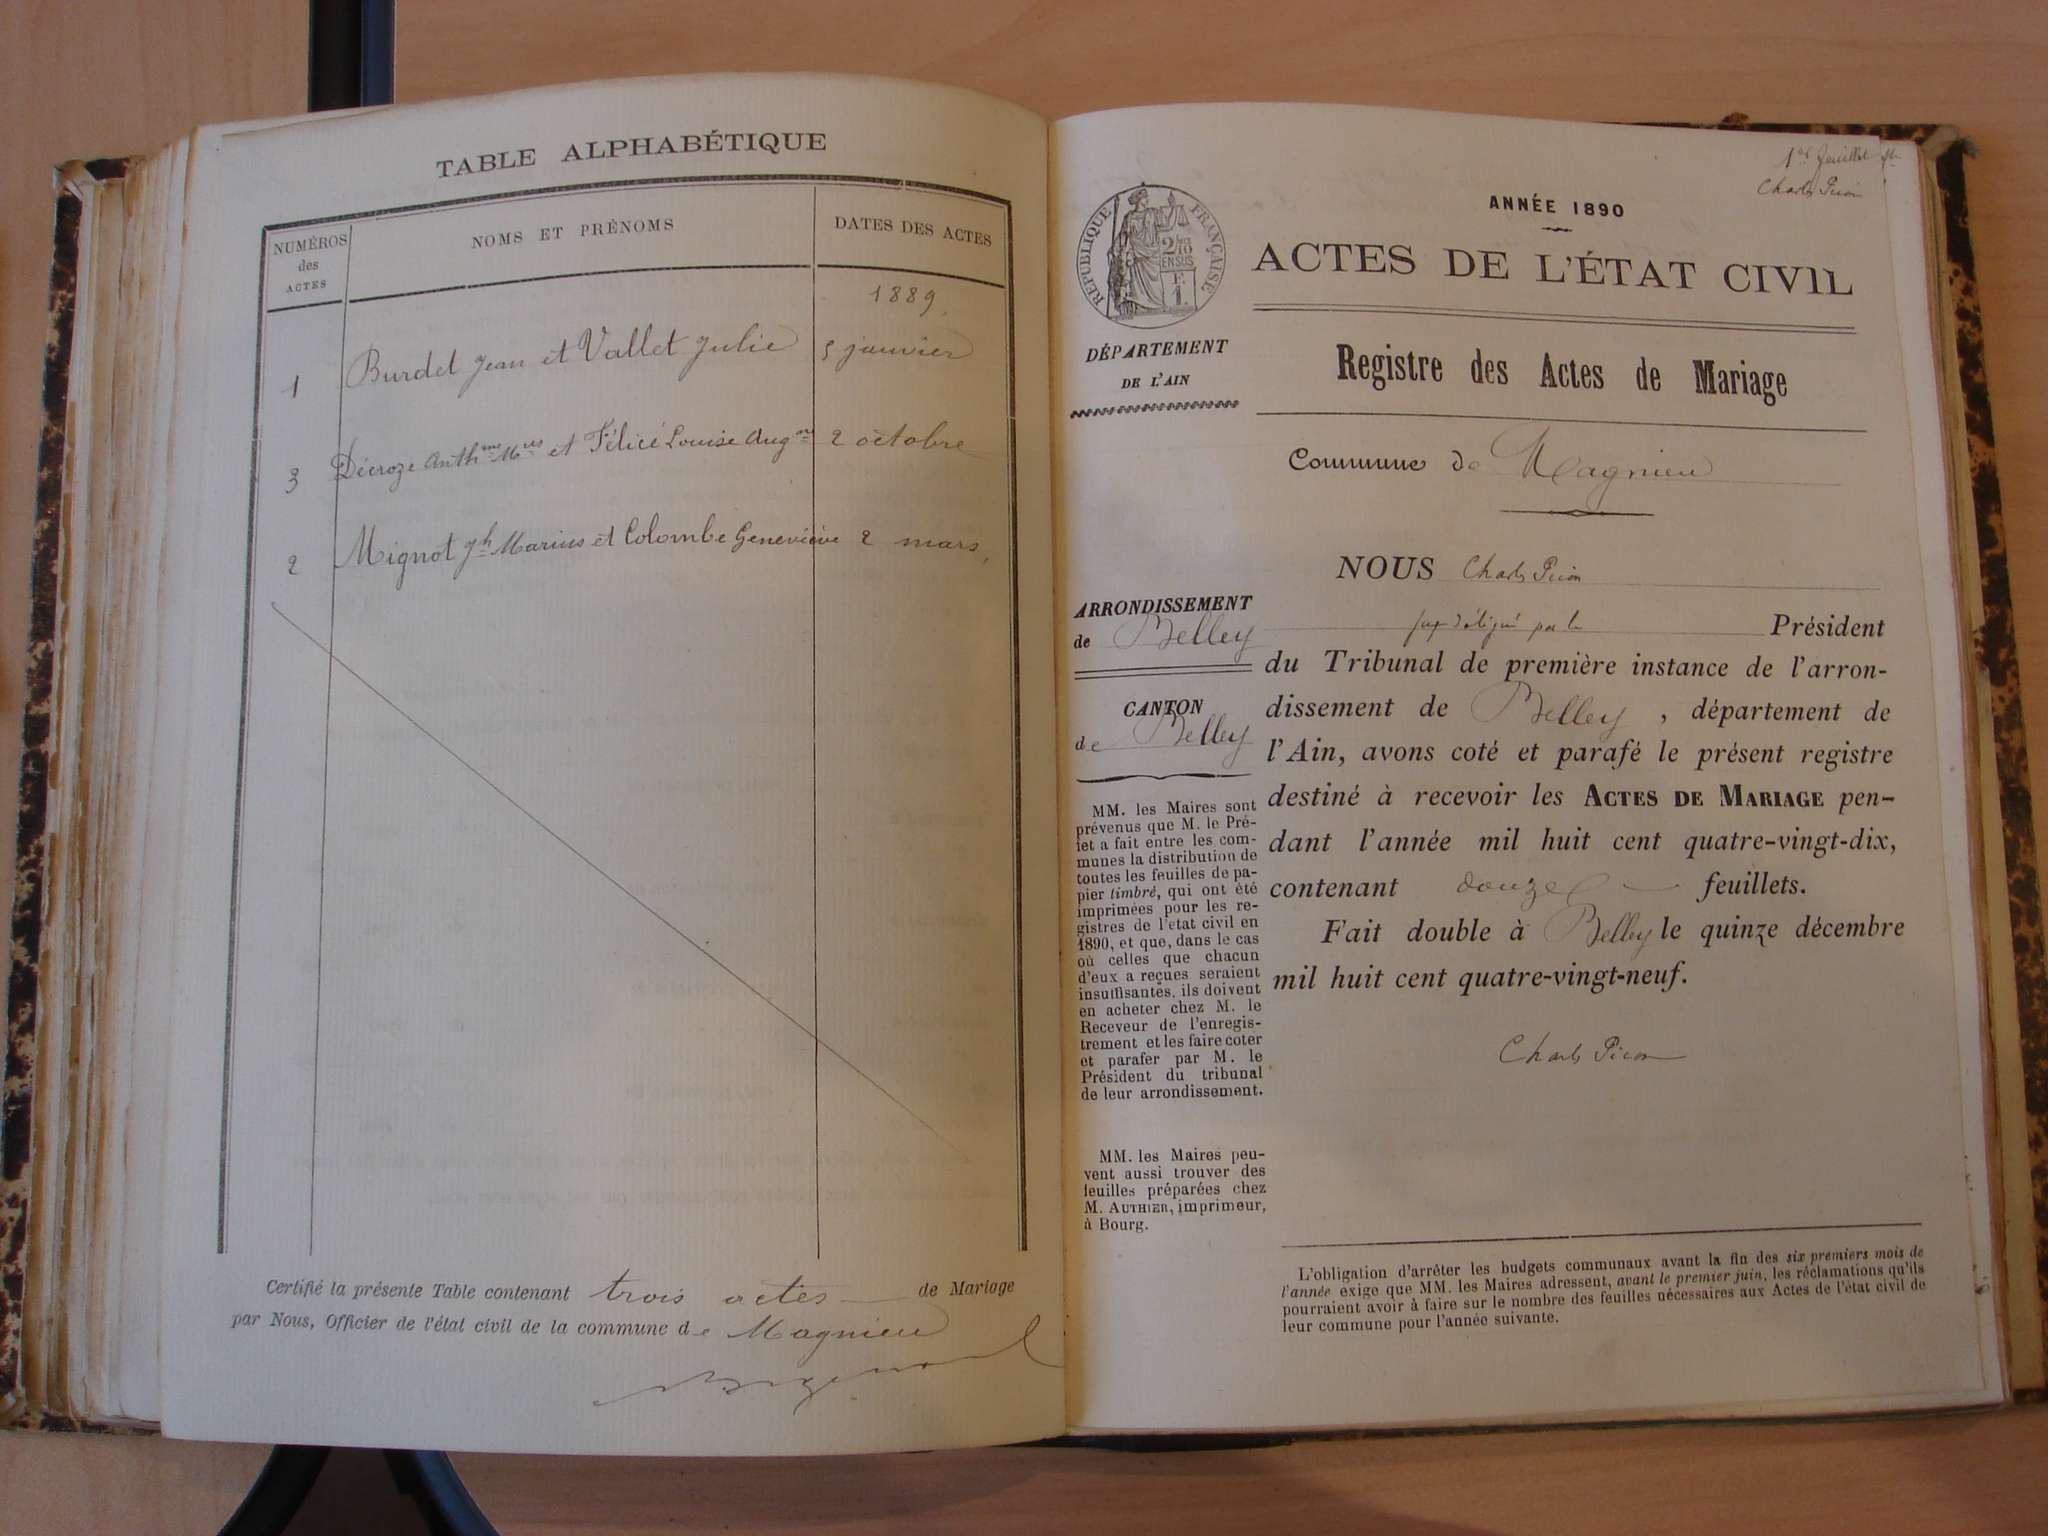 TABLE ALPHABÉTIQUE
NUMÉROS
des
ACTES
NOMS ET PRÉNOMS
DATES DES ACTES
1889.
1 Burdet Jean et Vallet Julie 5 janvier
3 Décroze Anth.me M.us et Félicé Louise Aug.ne 2 octobre
2 Mignot J.h Marius et Colombe Geneviève 2 mars,
Certifié la présente Table contenant trois actes de Mariage
par Nous, Officier de l'état civil de la commune de Magnieu
1er feuillet
Charles Picon
ANNÉE 1890
ACTES DE L'ÉTAT CIVIL
RÉPUBLIQUE FRANÇAISE
2/10
EN SUS
F.
1.
DÉPARTEMENT
DE L'AIN
Registre des Actes de Mariage
Commune de Magnieu
ARRONDISSEMENT
de Belley
CANTON
de Belley
MM. les Maires sont
prévenus que M. le Pré-
fet a fait entre les com-
munes la distribution de
toutes les feuilles de pa-
pier timbré, qui ont été
imprimées pour les re-
gistres de l'état civil en
1890, et que, dans le cas
où celles que chacun
d'eux a reçues seraient
insuffisantes, ils doivent
en acheter chez M. le
Receveur de l'enregis-
trement et les faire coter
et parafer par M. le
Président du tribunal
de leur arrondissement.
MM. les Maires peu-
vent aussi trouver des
feuilles préparées chez
M. AUTHIER, imprimeur,
à Bourg.
NOUS Charles Picon
juge délégué par le Président
du Tribunal de première instance de l'arron-
dissement de Belley, département de
l'Ain, avons coté et parafé le présent registre
destiné à recevoir les ACTES DE MARIAGE pen-
dant l'année mil huit cent quatre-vingt-dix,
contenant douze feuillets.
Fait double à Belley le quinze décembre
mil huit cent quatre-vingt-neuf.
Charles Picon
L'obligation d'arrêter les budgets communaux avant la fin des six premiers mois de
l'année exige que MM. les Maires adressent, avant le premier juin, les réclamations qu'ils
pourraient avoir à faire sur le nombre des feuilles nécessaires aux Actes de l'état civil de
leur commune pour l'année suivante.